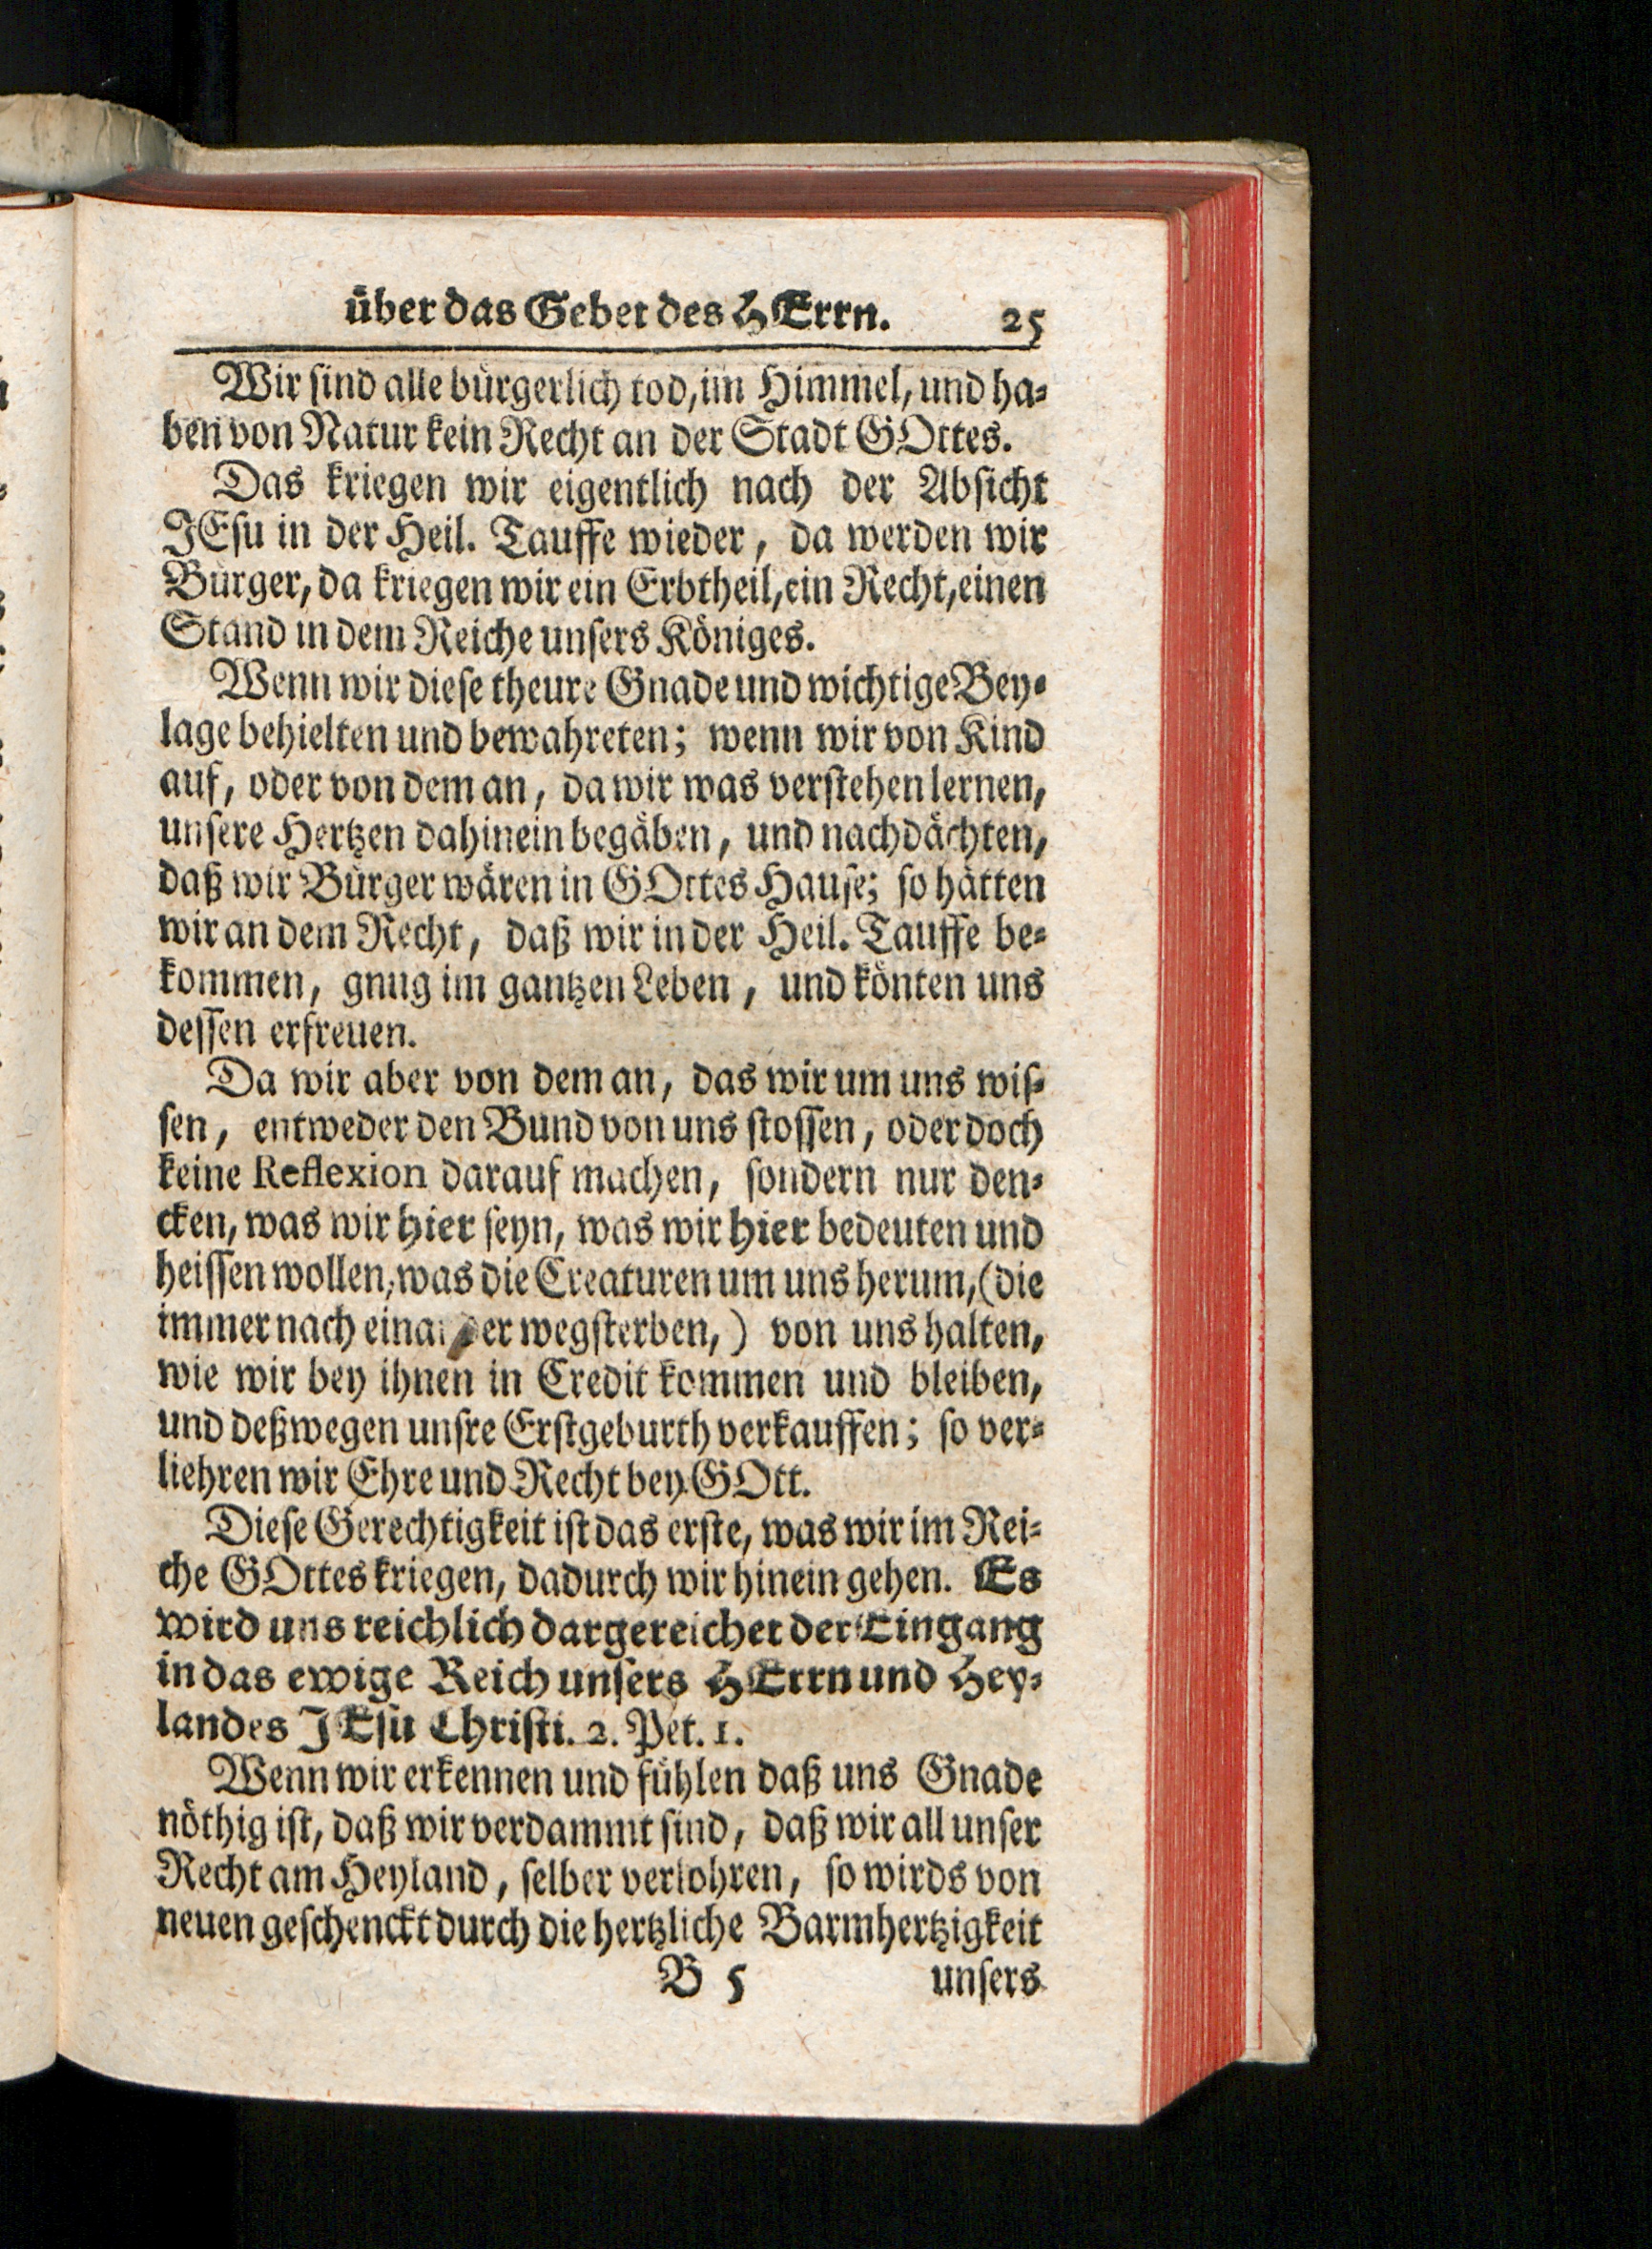 über das Gebet des HErrn. 25
Wir sind alle bürgerlich tod, im Himmel, und ha-
ben von Natur kein Recht an der Stadt GOttes.
Das kriegen wir eigentlich nach der Absicht
JEsu in der Heil. Tauffe wieder, da werden wir
Bürger, da kriegen wir ein Erbtheil, ein Recht, einen
Stand in dem Reiche unsers Königes.
Wenn wir diese theure Gnade und wichtige Bey-
lage behielten und bewahreten; wenn wir von Kind
auf, oder von dem an, da wir was verstehen lernen,
unsere Hertzen dahinein begäben, und nachdächten,
daß wir Bürger wären in GOttes Hause; so hätten
wir an dem Recht, daß wir in der Heil. Tauffe be-
kommen, gnug im gantzen Leben, und könten uns
dessen erfreuen.
Da wir aber von dem an, das wir um uns wis-
sen, entweder den Bund von uns stossen, oder doch
keine Reflexion darauf machen, sondern nur den-
cken, was wir hier seyn, was wir hier bedeuten und
heissen wollen, was die Creaturen um uns herum, (die
immer nach einander wegsterben,) von uns halten,
wie wir bey ihnen in Credit kommen und bleiben,
und deßwegen unsre Erstgeburth verkauffen; so ver-
liehren wir Ehre und Recht bey GOtt.
Diese Gerechtigkeit ist das erste, was wir im Rei-
che GOttes kriegen, dadurch wir hinein gehen. Es
wird uns reichlich dargereichet der Eingang
in das ewige Reich unsers HErrn und Hey-
landes JEsu Christi. 2. Pet. 1.
Wenn wir erkennen und fühlen daß uns Gnade
nöthig ist, daß wir verdammt sind, daß wir all unser
Recht am Heyland, selber verlohren, so wirds von
neuen geschenckt durch die hertzliche Barmhertzigkeit
B 5 unsers